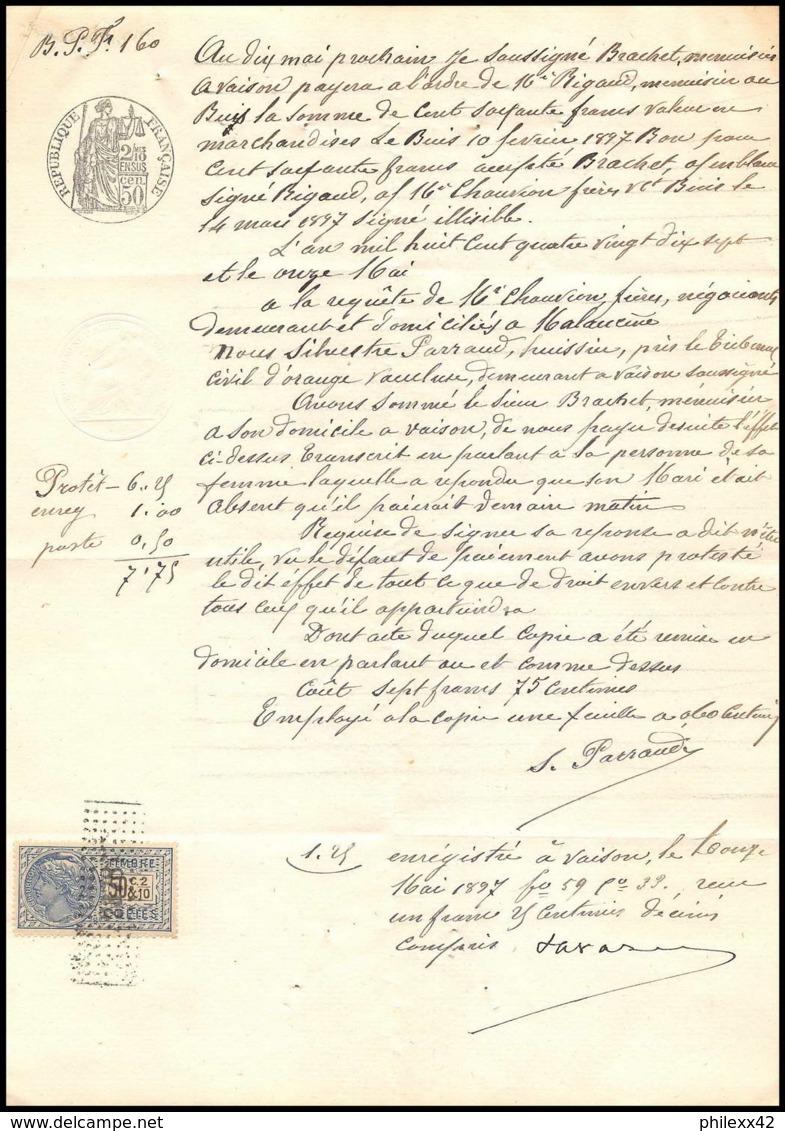 B. P. Fr 160
Au dix mai prochain Je soussigné Brachet, menuisier
a vaison payera a l'ordre de Mr Rigaud, menuisier au
Buis la somme de cent soixante francs valeur en
marchandises Le Buis 10 fevrier 1897 Bon pour
Cent soixante francs accepté Brachet, of en blanc
signé Rigaud, of Mr Chauvion frères Vr Buis le
14 mars 1897 signé illisible.
L'an mil huit cent quatre vingt dix sept
et le onze Mai
a la requête de Mr Chauvion frères, négociants
demeurant et domiciliés a Malaucène
Nous Silvestre Parraud, huissier, près le Tribunal
Civil d'orange vaucluse, demeurant a vaison soussigné
Avons sommé le sieur Brachet, menuisier
a son domicile a vaison, de nous payer desuite l'éffet
ci-dessus transcrit en parlant a la personne de sa
femme laquelle a repondu que son Mari était
absent qu'il paierait demain matin
Requise de signer sa reponse a dit
utile, vu le défaut de paiement avons protesté
le dit éffet de tout ce que de droit envers et contre
tous ceux qu'il appartiendra
Dont acte duquel copie a été remise en
domicile en parlant au et comme dessus
Coût sept francs 75 Centimes
Employé a la copie une feuille a 060 Centimes
S. Parraud
REPUBLIQUE FRANÇAISE
2/10
EN SUS
cen.
50
Protêt - 6.25
enreg 1.00
poste 0,50
7.75
TIMBRE
50 C 2
& 10
1.25
enregistré à Vaison, le douze
Mai 1897 fo 59 Co 39. reçu
un franc 25 Centimes décimes
compris
philexx42